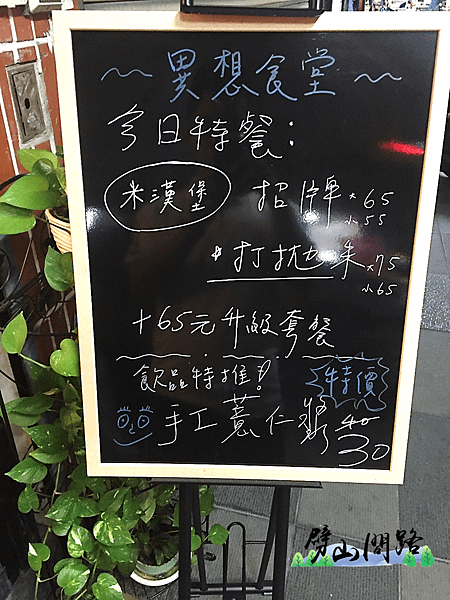 ～異想食堂～
今日特餐：
米漢堡 招牌 大65
小55
打拋朱 大75
小65
+65元升級套餐
飲品特推！ 特價
手工薏仁漿 40
30
劈山問路